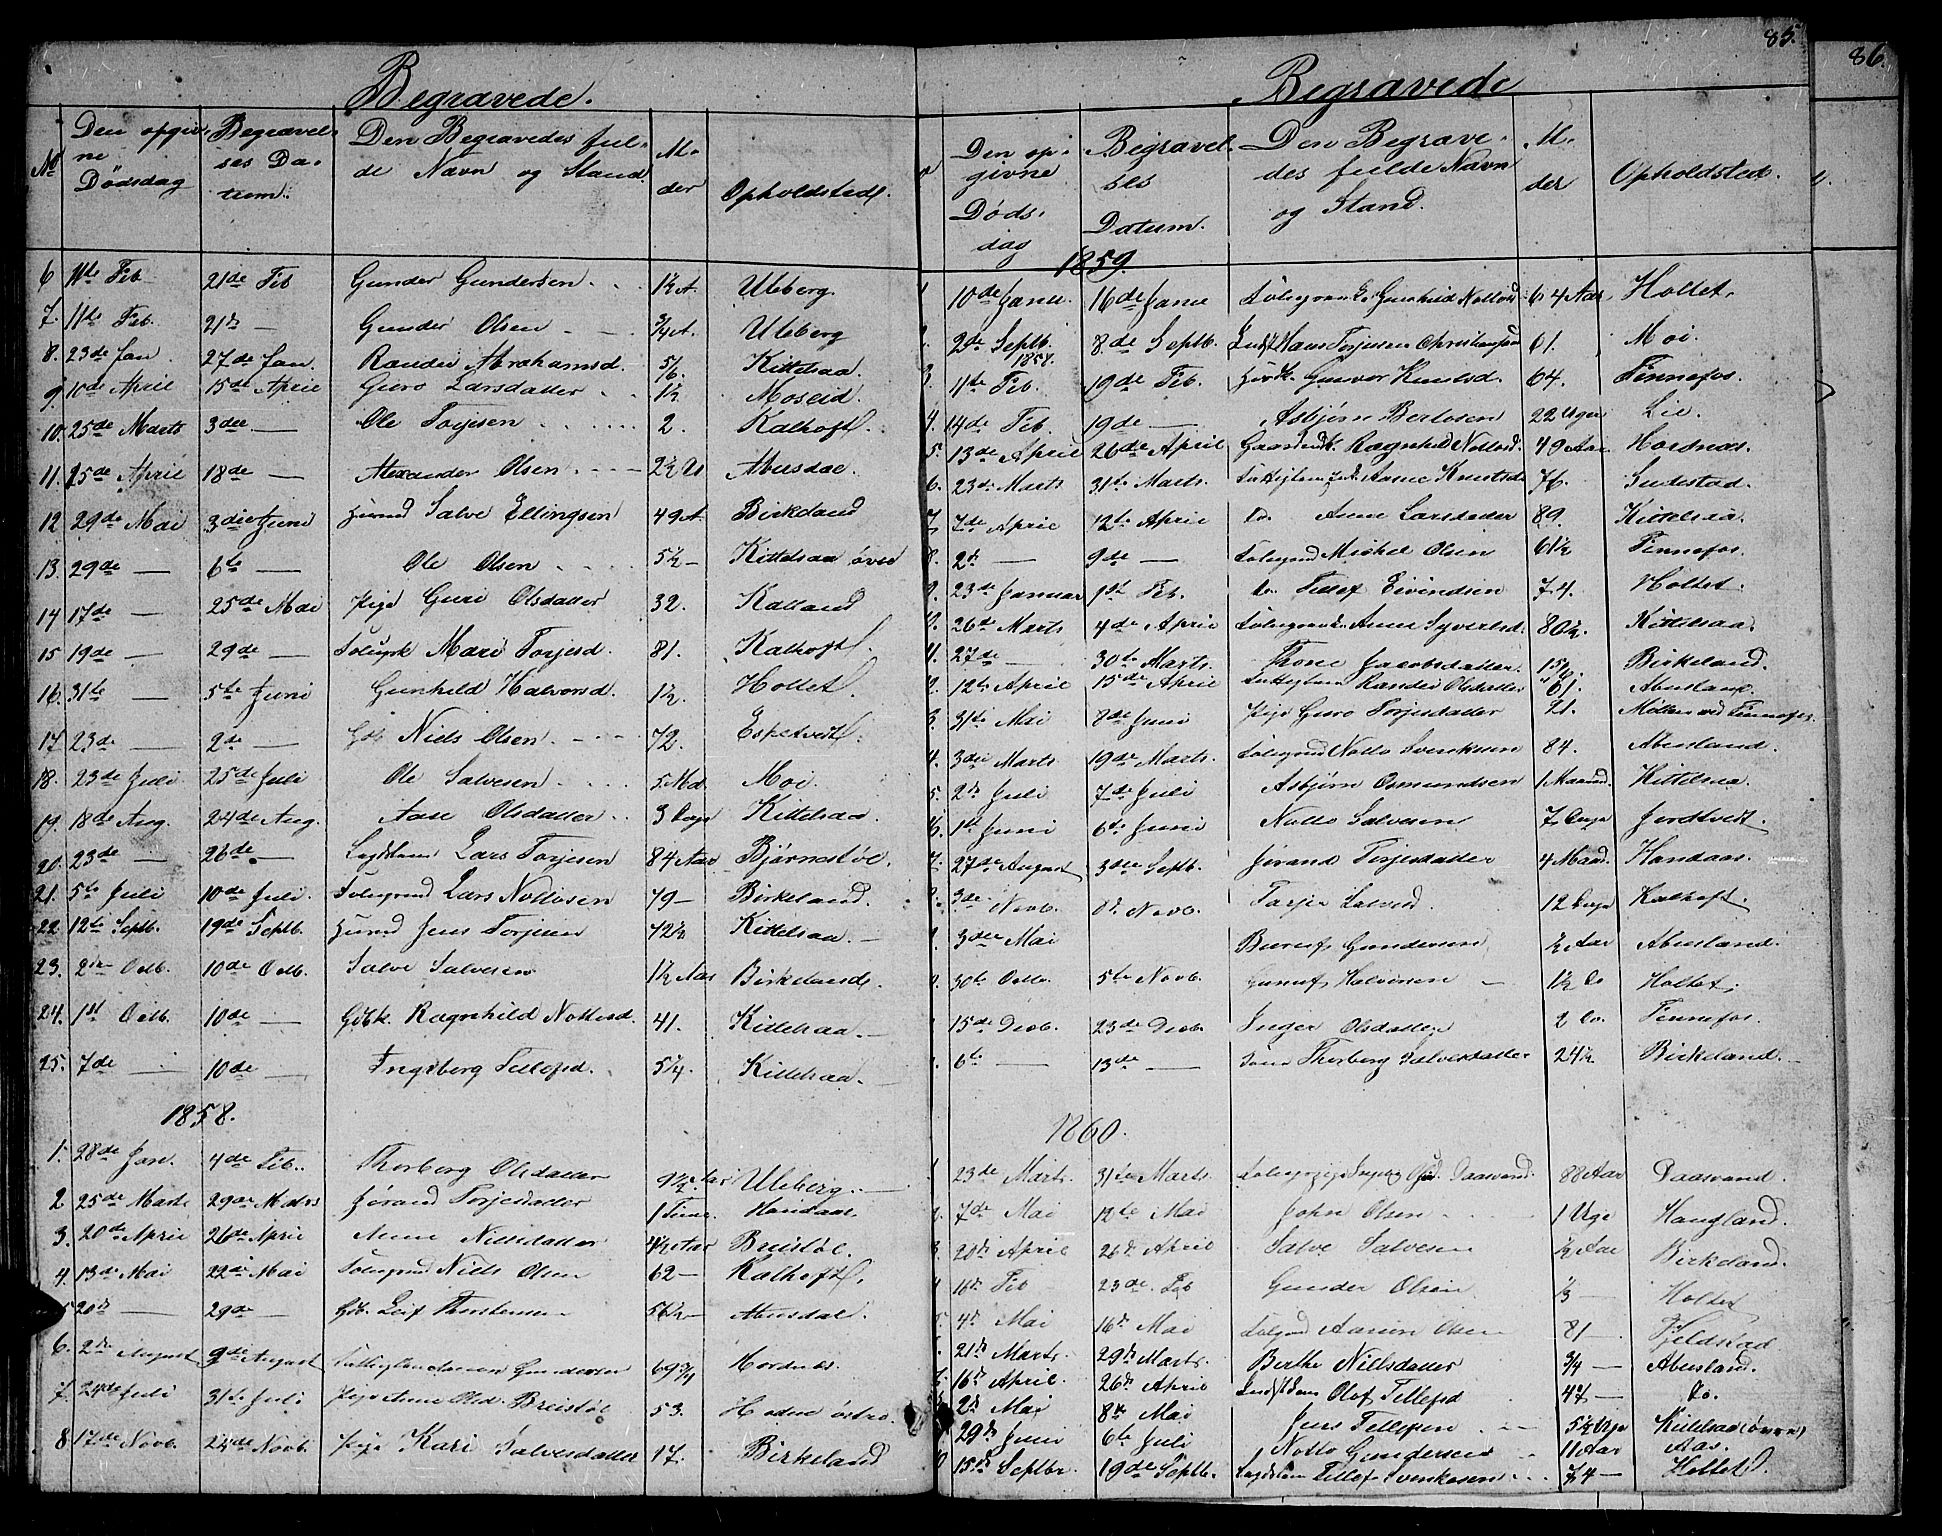 Begravede.
No Den opgivne Dødsdag Begravelses Datum. Den Begravedes fulde Navn og Stand Alder Opholdsted.
6 11te Feb 21de Feb Gunder Gundersen 1½ A. Uleberg.
7. 11te Feb. 21de — Gunder Olsen ¾ A. Uleberg
8. 23de Jan. 27de Jan. Randei Abrahamsd. 5/6. Kittelsaa.
9. 10de April 15de April Guro Larsdatter 1½ Moseid.
10. 25de Marts 3die — Ole Torjesen 2. Kalhoft.
11. 15de April 18de — Alexander Olsen 2½ Abusdal.
12. 29de Mai 3die Juni Salve Ellingsen 49 A. Birkeland
13. 29de — 6te — Ole Olsen 5½ — Kittelsaa øvre
14 17de — 25de Mai Pige Guri Olsdatter 32. Kalland
15 19de — 29de — Mari Torjesd. 81. Kalhoft.
16. 31te — 5te Juni Gunhild Halvorsd. 1½ Holtet.
17. 23de — 2de — Niels Olsen 72. Espetvedt.
18. 23de Juli 25de Juli Ole Salvesen 5 Md. Moi.
19. 18de Aug. 24de Aug. Aase Olsdatter 3 Dage Kittelsaa
20. 23de — 26de — Lægdslem Lars Torjesen 84 Aar Bjørnstøl.
21. 5te Juli 10de Juli. Lars Nottosen 79 — Birkeland.
22. 12te Septb. 19de Septb. Jens Torjesen 42½ Kittelsaa. —
23. 2den Octb. 10de Octb. Salve Salvesen 1½ Aar Birkeland.
24. 1st Octb. 10de — Gdk. Ragnhild Nottosd. 41. Kittelsaa. —
25. 7de — 10de — Ingeborg Tellefsd. 5¼. Kittelsaa.
1858.
1. 28de Jan. 4de Feb. Thorborg Olsdatter Uleberg. —
2 25de Marts 29de Marts Jórand Torjesdatter 1 Time. Handaas.
3. 20de April 26de April Anne Nielsdatter 4½ Aar Breistøl.
4. 13de Mai 22de Mai Niels Olsen 62 — Kalhoft.
5 20de — 29de — Gdb. Leif Thorstensen 56½ — Abusdal.
6. 2den August 9de August Gundersen 69¾ Hordnes.
7. 24de Juli 31te Juli Pige Anne Olsd. Breistøl 53.
8 17de Novb. 24de Novb. Pige Kari Salvesdatter 17. Birkeland
85.
86.
Begravede
Den opgivne Dødsdag Begravelses Datum. Den Begravedes fulde Navn og Stand. Alder Opholdsted.
1859.
10de Janu. 16de Janu Gunhild Nottosd. 64 Aar Holtet.
2. 2de Septb. 1858. 8de Septb. Hans Torjesen Christiansand 61. Moi.
3. 11te Feb. 19de Feb. Gunvor Knutsd. 64. Fennefos.
4. 14de Feb. 19de — Asbjørn Bertosen 22 Uger Lie.
5. 13de April 26de April Ragnhild Nottosd. 49 Aar Hordnæs.
6. 23de Marts 31te Marts. Aasne Knutsd. 76. Sudestad.
7. 7de April 12te April Do. Anne Larsdatter 89. Kittelsaa.
8. 2de — 9de — Michel Olsen 61½ Fennefos.
9. 23de Januar 1st Feb. Do. Tellef Eivindsen 74. Holtet.
0. 26de Marts 4de April Anne Syvertsd. 80½. Kittelsaa.
1. 27de — 30te Marts. Thone Jacobsdatter Birkeland.
2. 12te April 15de April Randei Olsdatter 61. Abusland.
3. 31te Mai 8de Juni Pige Guro Torjesdatter 21. Møllen ved Fennefos.
4. 3die Marts 19de Marts. Notto Svenksen 84. Abusland.
5. 2de Juli 7de Juli Asbjørn Osmundsen 1 Maaned Kittelsaa.
6. 1st Juni 6te Juni Notto Salvesen 7 Dage Jordtvedt.
7. 27de August 3die Septb. Jórand Torjesdatter 4 Maan. Handaas.
3de Novb. 8de Novb. Torje Salvesd. 12 Dage Kalhoft.
3die Mai Gundersen ½ Aar Abusland.
0. 30te Octb. 5te Novb. Gunuf Halvorsen — 1½ Do Holtet.
15de Decb. 23de Decb. Inger Olsdatter 2 Do. Fennefos.
6te — 13de — Thorborg Salvesdatter 24½ Birkeland. —
1860.
1 23de Marts 31te Marts. Daasvand. 88 Aar Daasvand.
2. 7de Mai 12te Mai John Olsen 1 Uge Haugland.
3 20de April 26de April Salve Salvesen ½ Aar Birkeland.
4 16de Feb 23de Feb Gunder Olsen ⅓ — Holtet
5. 4de Mai 16de Mai Aanon Olsen 81 — Fjeldstad
21de Marts. 29de Marts. Berthe Nielsdatter ¾ — Abusland.
16de April. 26de April Olaf Tellefsd 47 — Do.
2de Mai 8de Mai Jens Tellefsen 5½ Uge Kittelsaa (øvre)
29de Juni 6te Juli Notto Gundersen 11 Aar Aas.
0 15de Septbr. 19de Septb. Lægdslem Tellef Svenkesen 74 — Holtet.